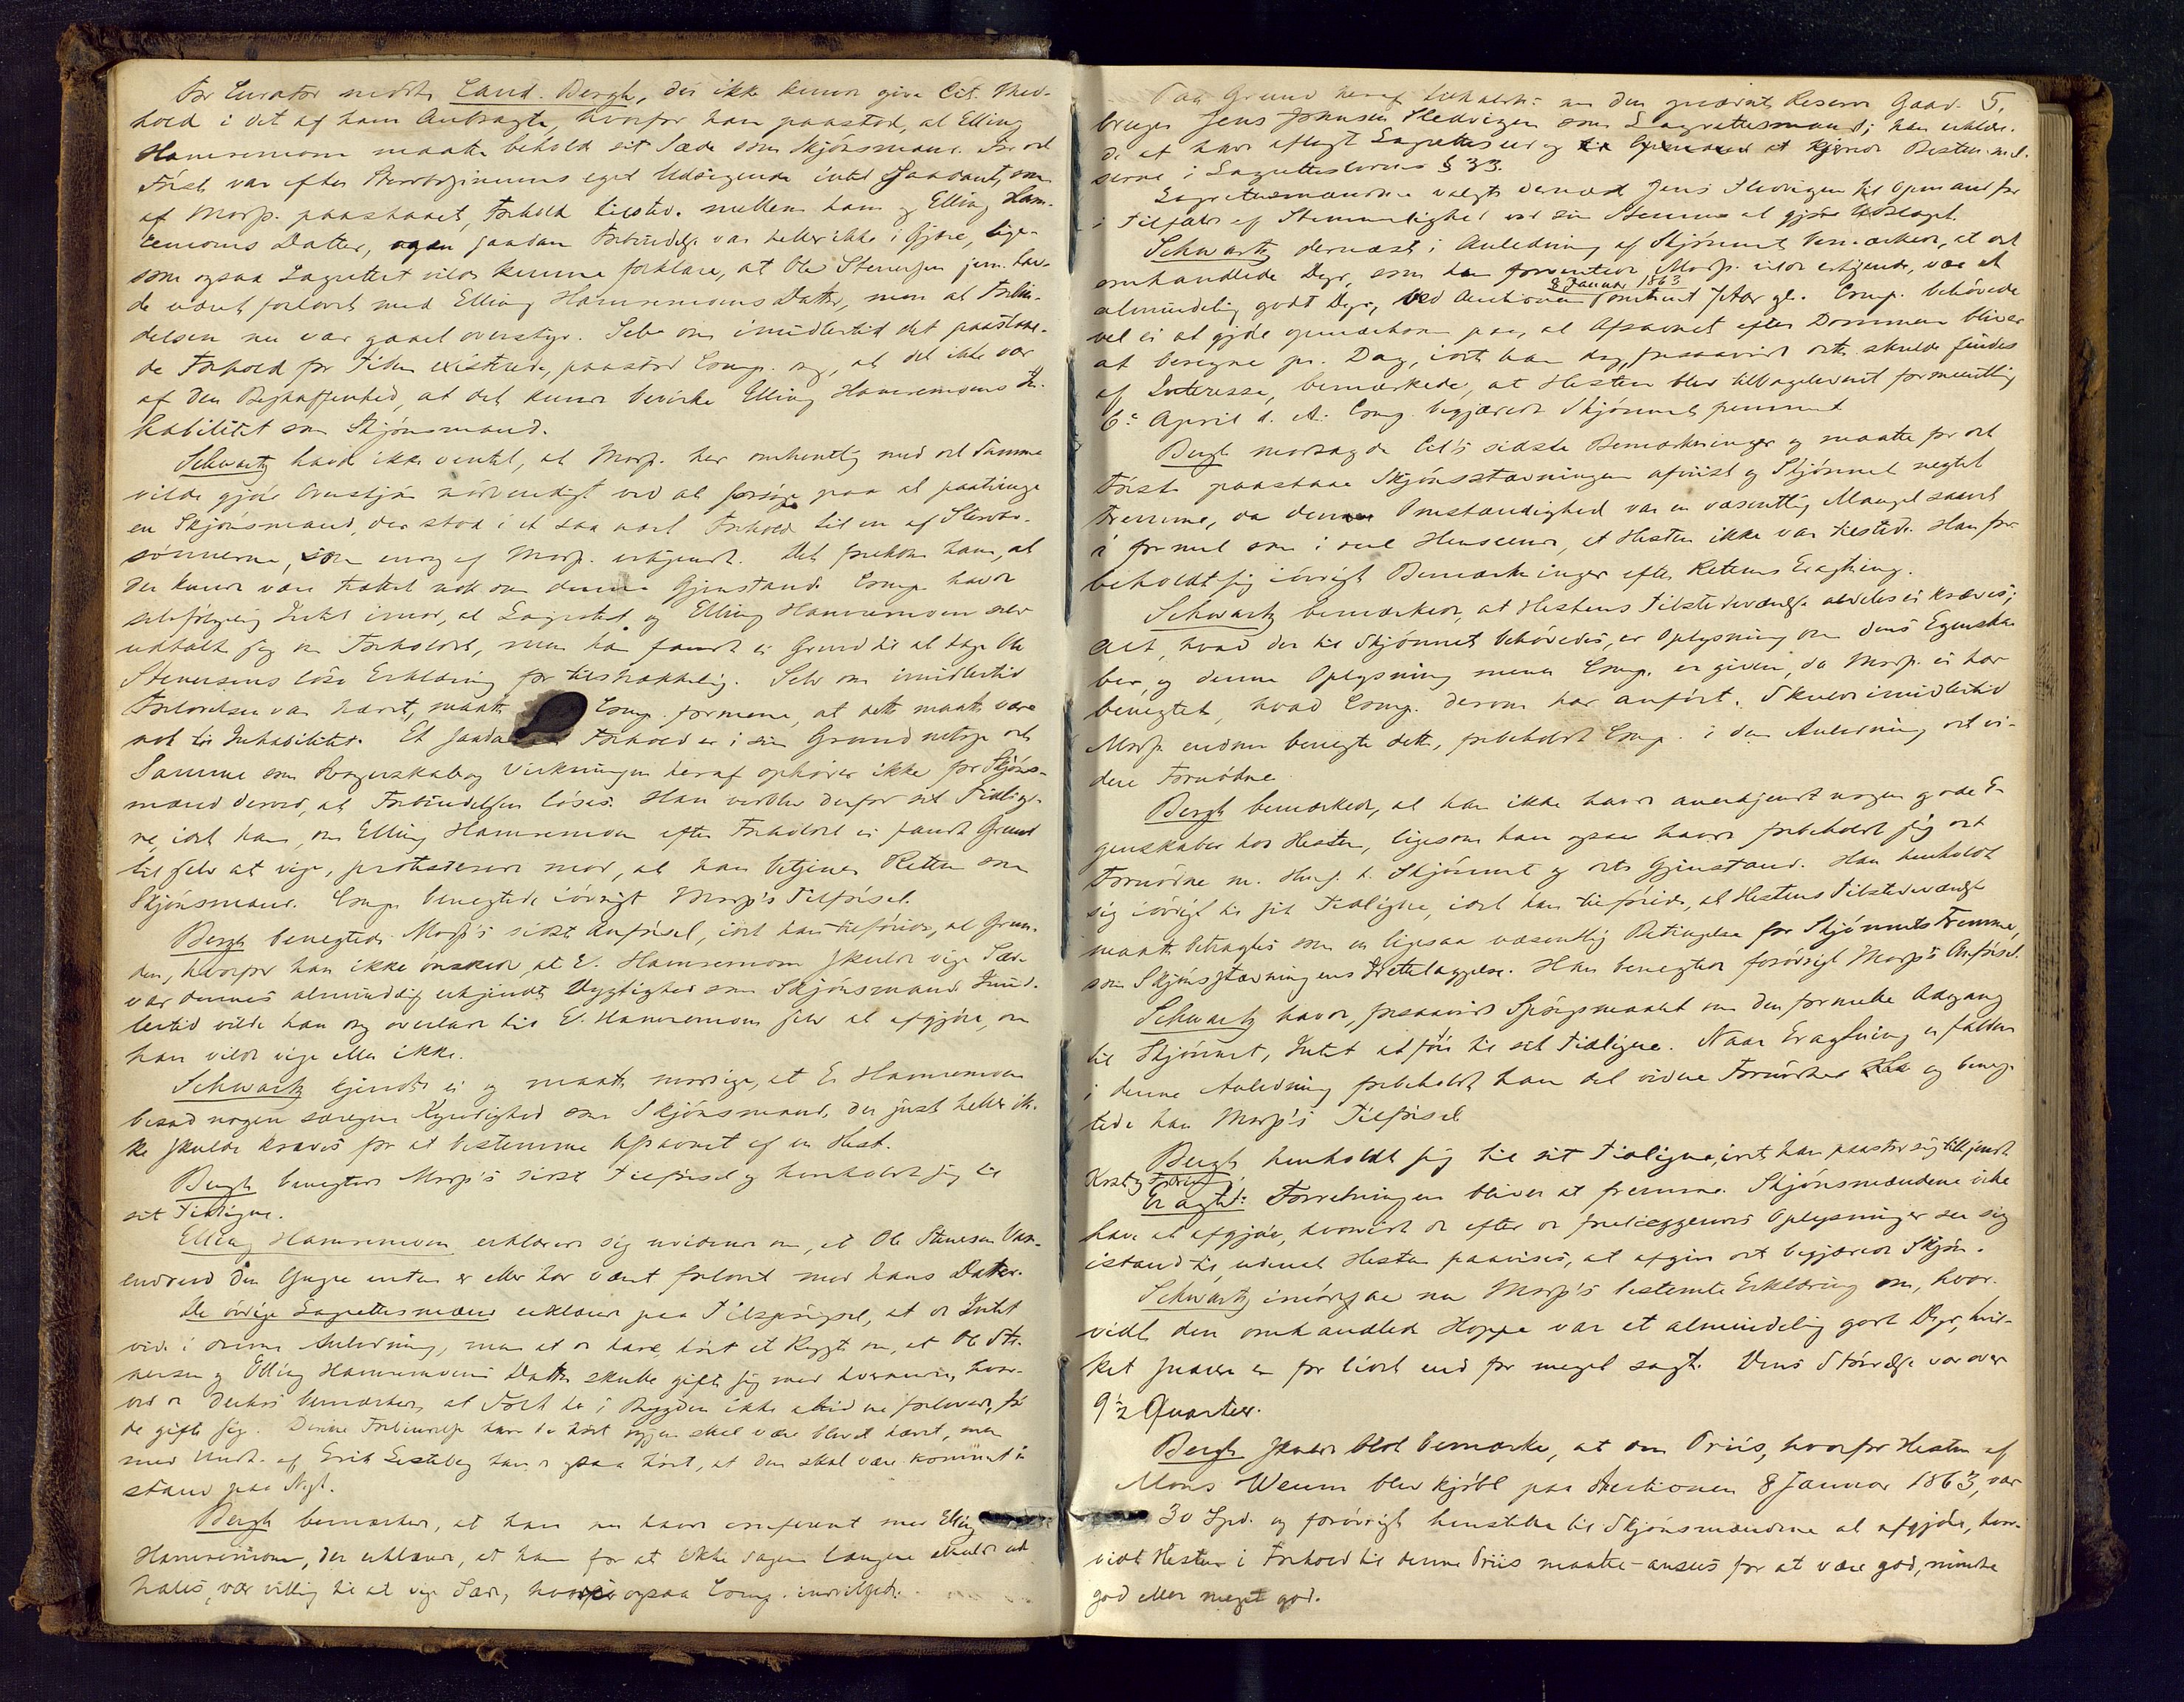 For Curator mødte Cand. Bergh, der ikke kunde give Cit. Med-
hold i det af ham Anbragte, hvorfor han paastod, at Elling
Hamremoen maatte beholde sit Sæde som Skjönsmand. For det
Første var efter eget Udsigende intet Saadant, som
af Modp. paastaaet, Forhold tilstede mellem ham og Elling Ham-
remoens Datter, ogen saadan Forbindelse var heller ikke i Gjære, lige-
som ogsaa Lagrettet vilde kunne forklare, at Ole Stenersen jun. hav-
de været forlovet med Elling Hamremoens Datter, men at Forbin-
delsen nu var gaaet overstyr. Selv om imidlertid det paastaae-
de Forhold for Tiden existerede, paastod Comp. og, at det ikke var
af den Beskaffenhed, at det kunde bevirke Elling Hamremoens In-
habilitet som Skjönsmand.
Schwartz havde ikke ventet, at Modp. her omhentlig med det Samme
vilde gjöre Omskjön nödvendigt ved at forsöge paa at paatvinge
en Skjönsmand, der stod i et saa nært Forhold til en af Stervbo-
sønnerne, som endog af Modp. erkjendt. Det forekom ham, at
der kunde være trættet nok om denne Gjenstand. Comp. havde
selvfölgelig Intet imod, at Lagrettet og Elling Hamremoen selv
udtalte sig om Forholdet, men han fandt ei Grund til at tage Ole
Stenersens löse Erklæring for tilstrækkelig. Selv om imidlertid
Forlovelsen var hævet, maatte Comp. formene, at dette maatte være
nok til Inhabilitet. Et saadant Forhold er i sin Grund netop det
Samme som Svogerskab og Virkningen deraf ophörer ikke for Skjöns-
mænd derved, at Forbindelsen löses. Han verblev derfor sit Tidlige-
re, idet han, om Elling Hamremoen efter Forholdet ei fandt Grund
til selv at vige, protesterede mod, at han betjener Retten som
Skjönsmand. Comp. benegtede iövrigt Modp's Tilförsel.
Bergh benegtede Modp's sidste Anförsel, idet han tilföiede, at Grun-
den, hvorfor han ikke önskede, at E. Hamremoen skulde vige Sæde
var dennes almindelig erkjendte Dygtighed som Skjönsmand. Imid-
lertid vilde han og overlade til E. Hamremoen selv at afgjöre, om
han vilde vige eller ikke.
Schwartz kjendte ei og maatte modsige, at E. Hamremoen
besad nogen særegen Kyndighed som Skjönsmand, der just heller ik-
ke skulde kræves for at bestemme Afsavnet af en Hest.
Bergh benegtede Modp's sidste Tilförsel og henholdt sig til
sit Tidligere.
Elling Hamremoen erklærede sig uvidende om, at Ole Stenersen
den Yngre enten er eller har været forlovet med hans Datter.
De övrige Lagrettesmænd erklærede paa Tilspörgsel, at de Intet
vide i denne Anledning, men at de have hört et Rygte om, at Ole Ste-
nersen og Elling Hamremoens Datter skulle gifte sig med hverandre, hvor-
ved de derhos bemærker, at Folk her i Bygden ikke altid ere forlovede, för
de gifte sig. Denne Forbindelse have de hört sige skal være blevet hævet, men
med Undt. af Erik have de ogsaa hört, at den skal være kommet i
stand paa Ny.
Bergh bemærkede, at han nu havde confereret med Elling
Hamremoen, der erklærede, at han for at ikke Sagen længere skulde ud-
hales, var villig til at vige Sæde, hvori ogsaa Comp. indvilgede.
5.
Paa Grund heraf tiltraadte nu den Reserve Gaard-
bruger Jens Johnsen Hedvigen som Lagrettesmand; han erklære-
de at have aflagt Lagrettes ed og at kjende Bestemmel-
serne i Lagretteslovens § 33.
Lagrettesmændene valgte dernæst Jens Hedvigen til Opmand for
i Tilfælde af Stemmelighed ved sin Stemme at gjöre Udslaget.
Schwartz dernæst i Anledning af Skjönnet bemærkede, at det
omhandlede Dyr, som han forventede Modp. vilde erkjende, var et
8 Januar 1863
almindelig godt Dyr, ved Auctionen 7 Aar gl. Comp. behövede
vel ei at gjöre opmærksom paa, at Afsavnet efter Dommen bliver
at beregne pr. Dag, idet han dog, forsaavidt dette skulde findes
af Interesse, bemærkede, at Hesten blev tilbageleveret formeentlig
6te April d. A. Comp. begjærede Skjönnet fremmet.
Bergh modsagde Cit's sidste Bemærkninger og maatte for det
Første paastaae Skjönsstævningen afviist og Skjönnet negtet
Fremme, da denne Omstændighed var en væsentlig Mangel saavel
i formel som i reel Henseende, at Hesten ikke var tilstede. Han for-
beholdt sig iövrigt Bemærkninger efter Rettens Eragtning.
Schwartz bemærkede, at Hestens Tilstedeværelse aldeles ei kræves;
Alt, hvad der til Skjönnet behövedes, er Oplysning om dens Egenska-
ber, og denne Oplysning mener Comp. er given, da Modp. ei har
benegtet, hvad Comp. derom har anfört. Skulde imidlertid
Modp. endnu benegte dette, forbeholdt Comp. i den Anledning det vi-
dere Fornödne.
Bergh bemærkede, at han ikke havde anerkjendt nogen gode E-
genskaber hos Hesten, ligesom han ogsaa havde forbeholdt sig det
Fornödne m. H. t. Skjönnet og dets Gjenstand. Han henholdt
sig iövrigt til sit Tidligere, idet han tilföiede, at Hestens Tilstedeværelse
maatte betragtes som en ligesaa væsentlig Betingelse for Skjönnets Fremme,
som Skjönsstævningens Irettelæggelse. Han benegtede forövrigt Modp's Anförsel.
Schwartz havde, forsaavidt Spörgsmaalet om den formelle Adgang
til Skjönnet, Intet at föie til sit Tidligere. Naar Eragtning er falden
i denne Anledning forbeholdt han det videre Fornödne og beneg-
tede han Modp's Tilförsel.
Bergh henholdt sig til sit Tidligere, idet han paastod sig tilkjendt
Kost og Tæring.
Eragtet: Forretningen bliver at fremme. Skjönsmændene ville
have at afgjöre, hvorvidt de efter de foreliggende Oplysninger see sig
istand til, uden at Hesten paavises, at afgive det begjærede Skjön.
Schwartz imödesaae nu Modp's bestemte Erklæring om, hvor-
vidt den omhandlede Hoppe var et almindelig godt Dyr, hvil-
ket snarere er for lidet end for meget sagt. Dens Störrelse var over
9½ Quarteer.
Bergh skulde blot bemærke, at den Priis, hvorfor Hesten af
Mons Weum blev kjöbt paa Auctionen 8 Januar 1863, var
30 Spd. og forövrigt henstille til Skjönsmændene at afgjöre, hvor-
vidt Hesten i Forhold til denne Priis maatte ansees for at være god, mindre
god eller meget god.